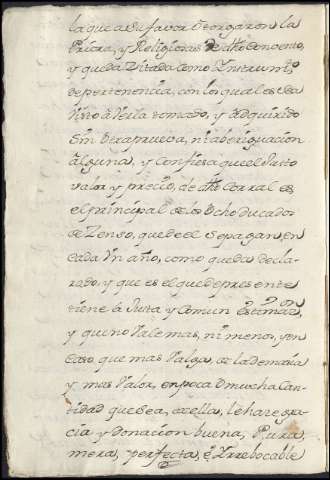 la que a su favor otorgaron la
Priora, y Religiosas de dho Conbento,
y queda Zitada como Instrumto
de pertenencia, con los quales se a
visto averla tomado, y adquirido
sin otra prueva, ni aberiguacion
alguna, y Confiesa que el Justo
valor y precio, de dho Corral es
el principal de los ocho ducados
de Zenso, que de el se pagan, en
cada Un año, como queda decla-
rado, y que es el que de presente
tiene â Justa y Comun estimaz.on
y que no Vale mas, ni menos, y en
Caso que mas Valga, de la demasia
y mas Valor, en poca ô mucha Can-
tidad que sea, de ella, le hace gra-
cia y donacion buena, Pura
mera, perfecta, è Yrrebocable